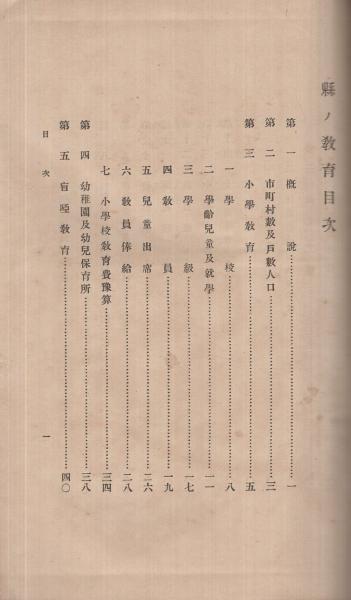 縣ノ敎育目次
第一 概說……一
第二 市町村數及戶數人口……三
第三 小學敎育……五
一 學校……八
二 學齡兒童及就學……一一
三 學級……一七
四 敎員……一九
五 兒童出席……二六
六 敎員俸給……二八
七 小學校敎育費豫算……三四
第四 幼稚園及幼兒保育所……三八
第五 盲啞敎育……四〇
目次 一